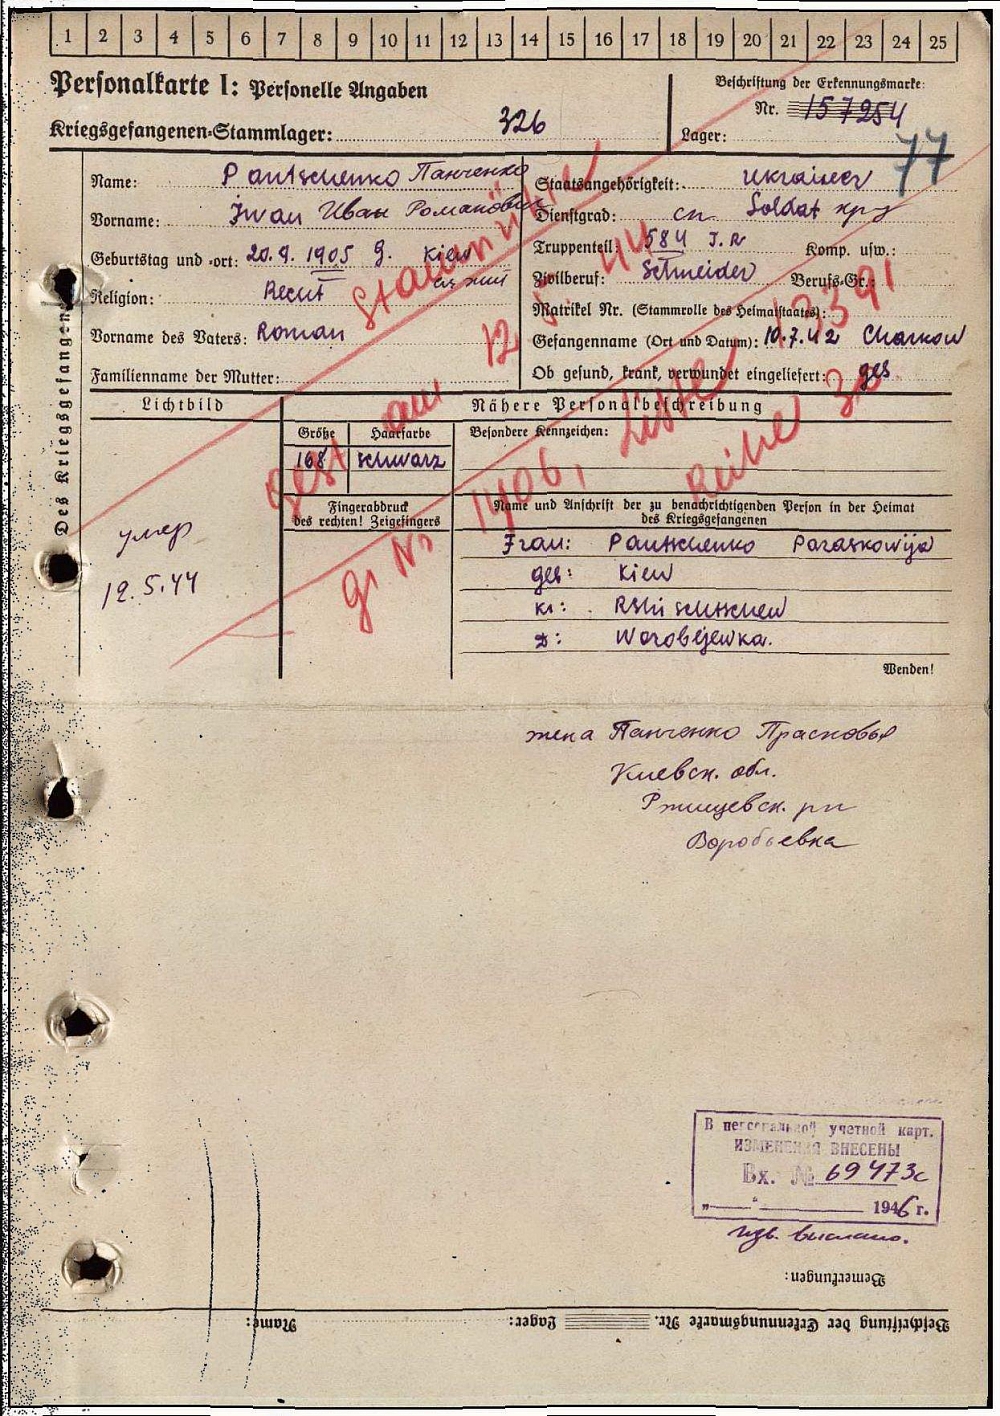 1 2 3 4 5 6 7 8 9 10 11 12 13 14 15 16 17 18 19 20 21 22 23 24 25
Personalkarte I: Personelle Angaben
Beschriftung der Erkennungsmarke:
Nr. 157254
Kriegsgefangenen-Stammlager: 326
Lager:
77
Des Kriegsgefangenen
Name: Pantschenko Панченко
Vorname: Iwan Иван Романович
Geburtstag und -ort: 20.9.1905 g. Kiew
Religion:
Vorname des Vaters: Roman
Familienname der Mutter:
Staatsangehörigkeit: Ukrainer
Dienstgrad: Soldat
Truppenteil: 584 J.R Komp. usw.:
Zivilberuf: Schneider Berufs-Gr.:
Matrikel Nr. (Stammrolle des Heimatstaates):
Gefangenname (Ort und Datum): 10.7.42 Charkow
Ob gesund, krank, verwundet eingeliefert: ges
gest am 12.5.44
gr Nr 1406, Liste
Reihe
Lichtbild
Nähere Personalbeschreibung
Größe Haarfarbe Besondere Kennzeichen:
168 schwarz
Fingerabdruck
des rechten! Zeigefingers
Name und Anschrift der zu benachrichtigenden Person in der Heimat
des Kriegsgefangenen
Frau: Pantschenko Paraskowija
geb: Kiew
kr: Rshischtschew
D: Worobjewka.
умер
12.5.44
Wenden!
жена Панченко Прасковья
Киевск. обл.
Ржищевск. рн
Воробьевка
В персональной учетной карт.
ИЗМЕНЕНИЯ ВНЕСЕНЫ
Вх. № 69473с
1946 г.
изв. выслано.
Bemerkungen:
Beschriftung der Erkennungsmarke Nr. Lager: Name: